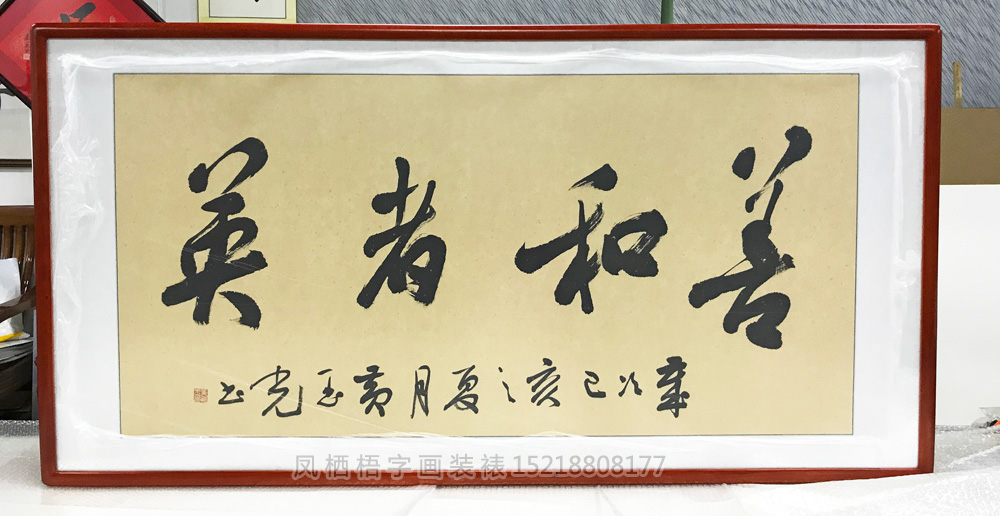 善和者英
歲次己亥之夏月黃玉光书
凤栖梧字画装裱15218808177